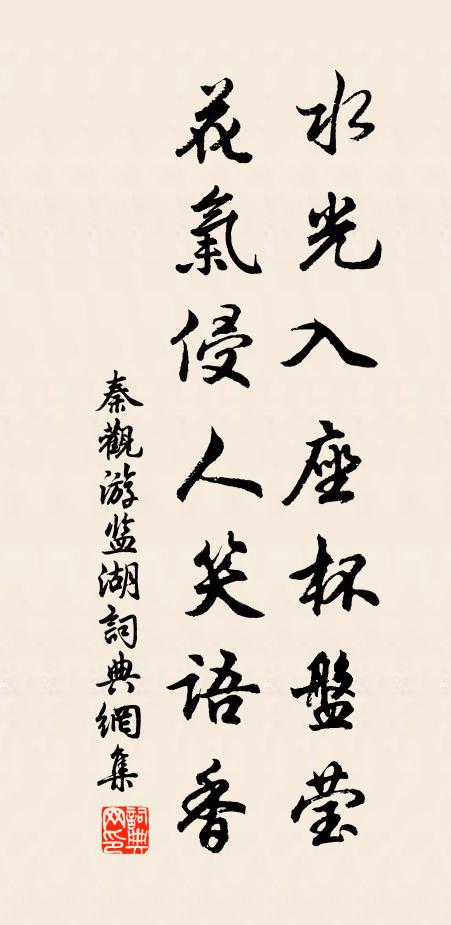 水光入座杯盤莹
花氣侵人笑語香
秦觀游监湖詞典網集
詞典网印